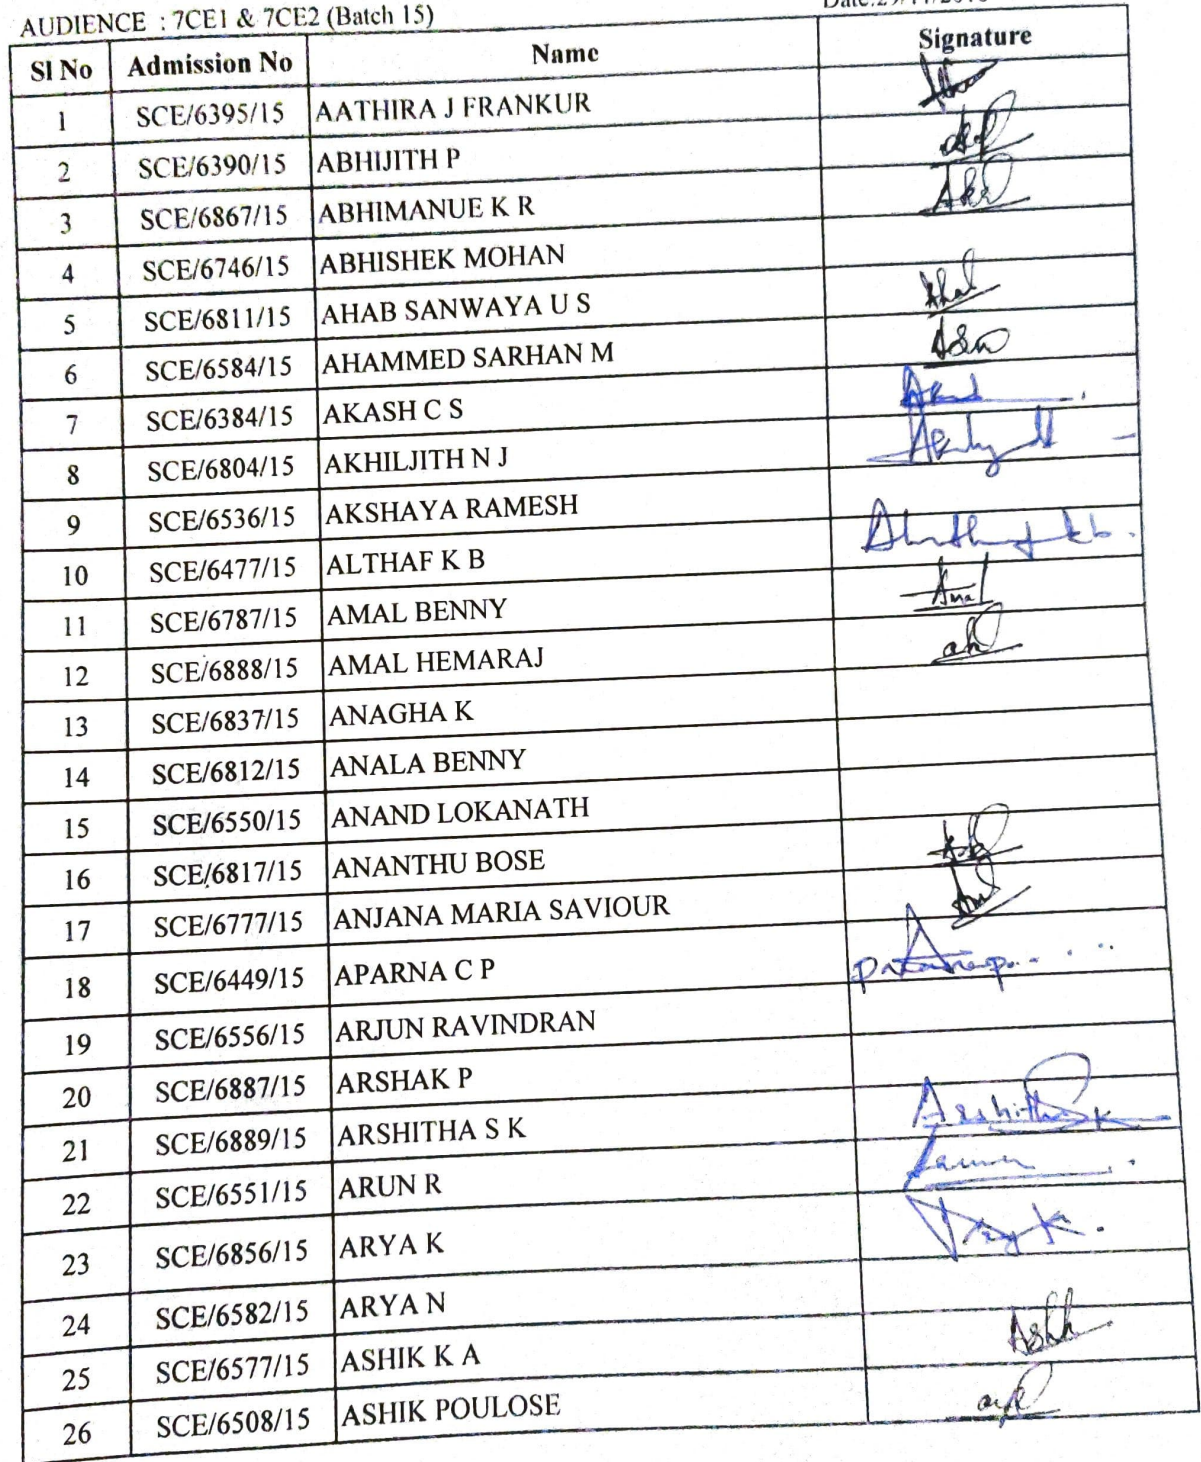 AUDIENCE : 7CE1 & 7CE2 (Batch 15)
Sl No Admission No Name Signature
1 SCE/6395/15 AATHIRA J FRANKUR
2 SCE/6390/15 ABHIJITH P
3 SCE/6867/15 ABHIMANUE K R
4 SCE/6746/15 ABHISHEK MOHAN
5 SCE/6811/15 AHAB SANWAYA U S
6 SCE/6584/15 AHAMMED SARHAN M
7 SCE/6384/15 AKASH C S
8 SCE/6804/15 AKHILJITH N J
9 SCE/6536/15 AKSHAYA RAMESH
10 SCE/6477/15 ALTHAF K B
11 SCE/6787/15 AMAL BENNY Amal
12 SCE/6888/15 AMAL HEMARAJ
13 SCE/6837/15 ANAGHA K
14 SCE/6812/15 ANALA BENNY
15 SCE/6550/15 ANAND LOKANATH
16 SCE/6817/15 ANANTHU BOSE
17 SCE/6777/15 ANJANA MARIA SAVIOUR
18 SCE/6449/15 APARNA C P
19 SCE/6556/15 ARJUN RAVINDRAN
20 SCE/6887/15 ARSHAK P
21 SCE/6889/15 ARSHITHA S K
22 SCE/6551/15 ARUN R
23 SCE/6856/15 ARYA K
24 SCE/6582/15 ARYA N
25 SCE/6577/15 ASHIK K A
26 SCE/6508/15 ASHIK POULOSE